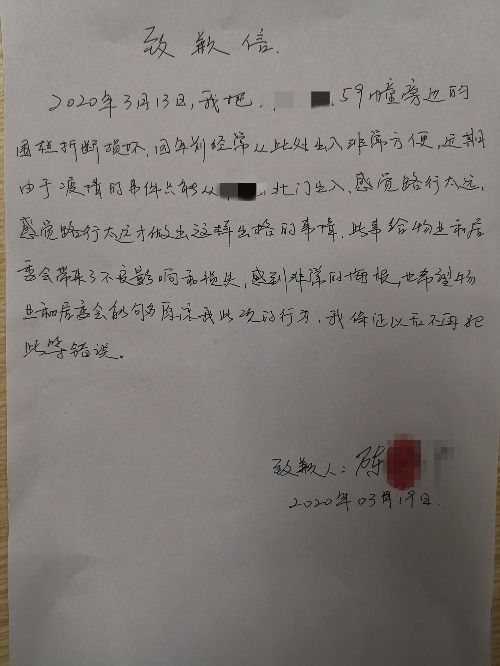 致歉信.
2020年3月13日,我把 59幢旁边的
围栏折断损坏.因平时经常从此处出入非常方便,近期
由于疫情的事件只能从 北门出入,感觉路行太远,
感觉路行太远才做出这样出格的事情.此事给物业和居
委会带来了不良影响和损失,感到非常的悔恨,也希望物
业和居委会能够原谅我此次的行为,我保证以后不再犯
此等错误。
致歉人:陈
2020年03月19日.